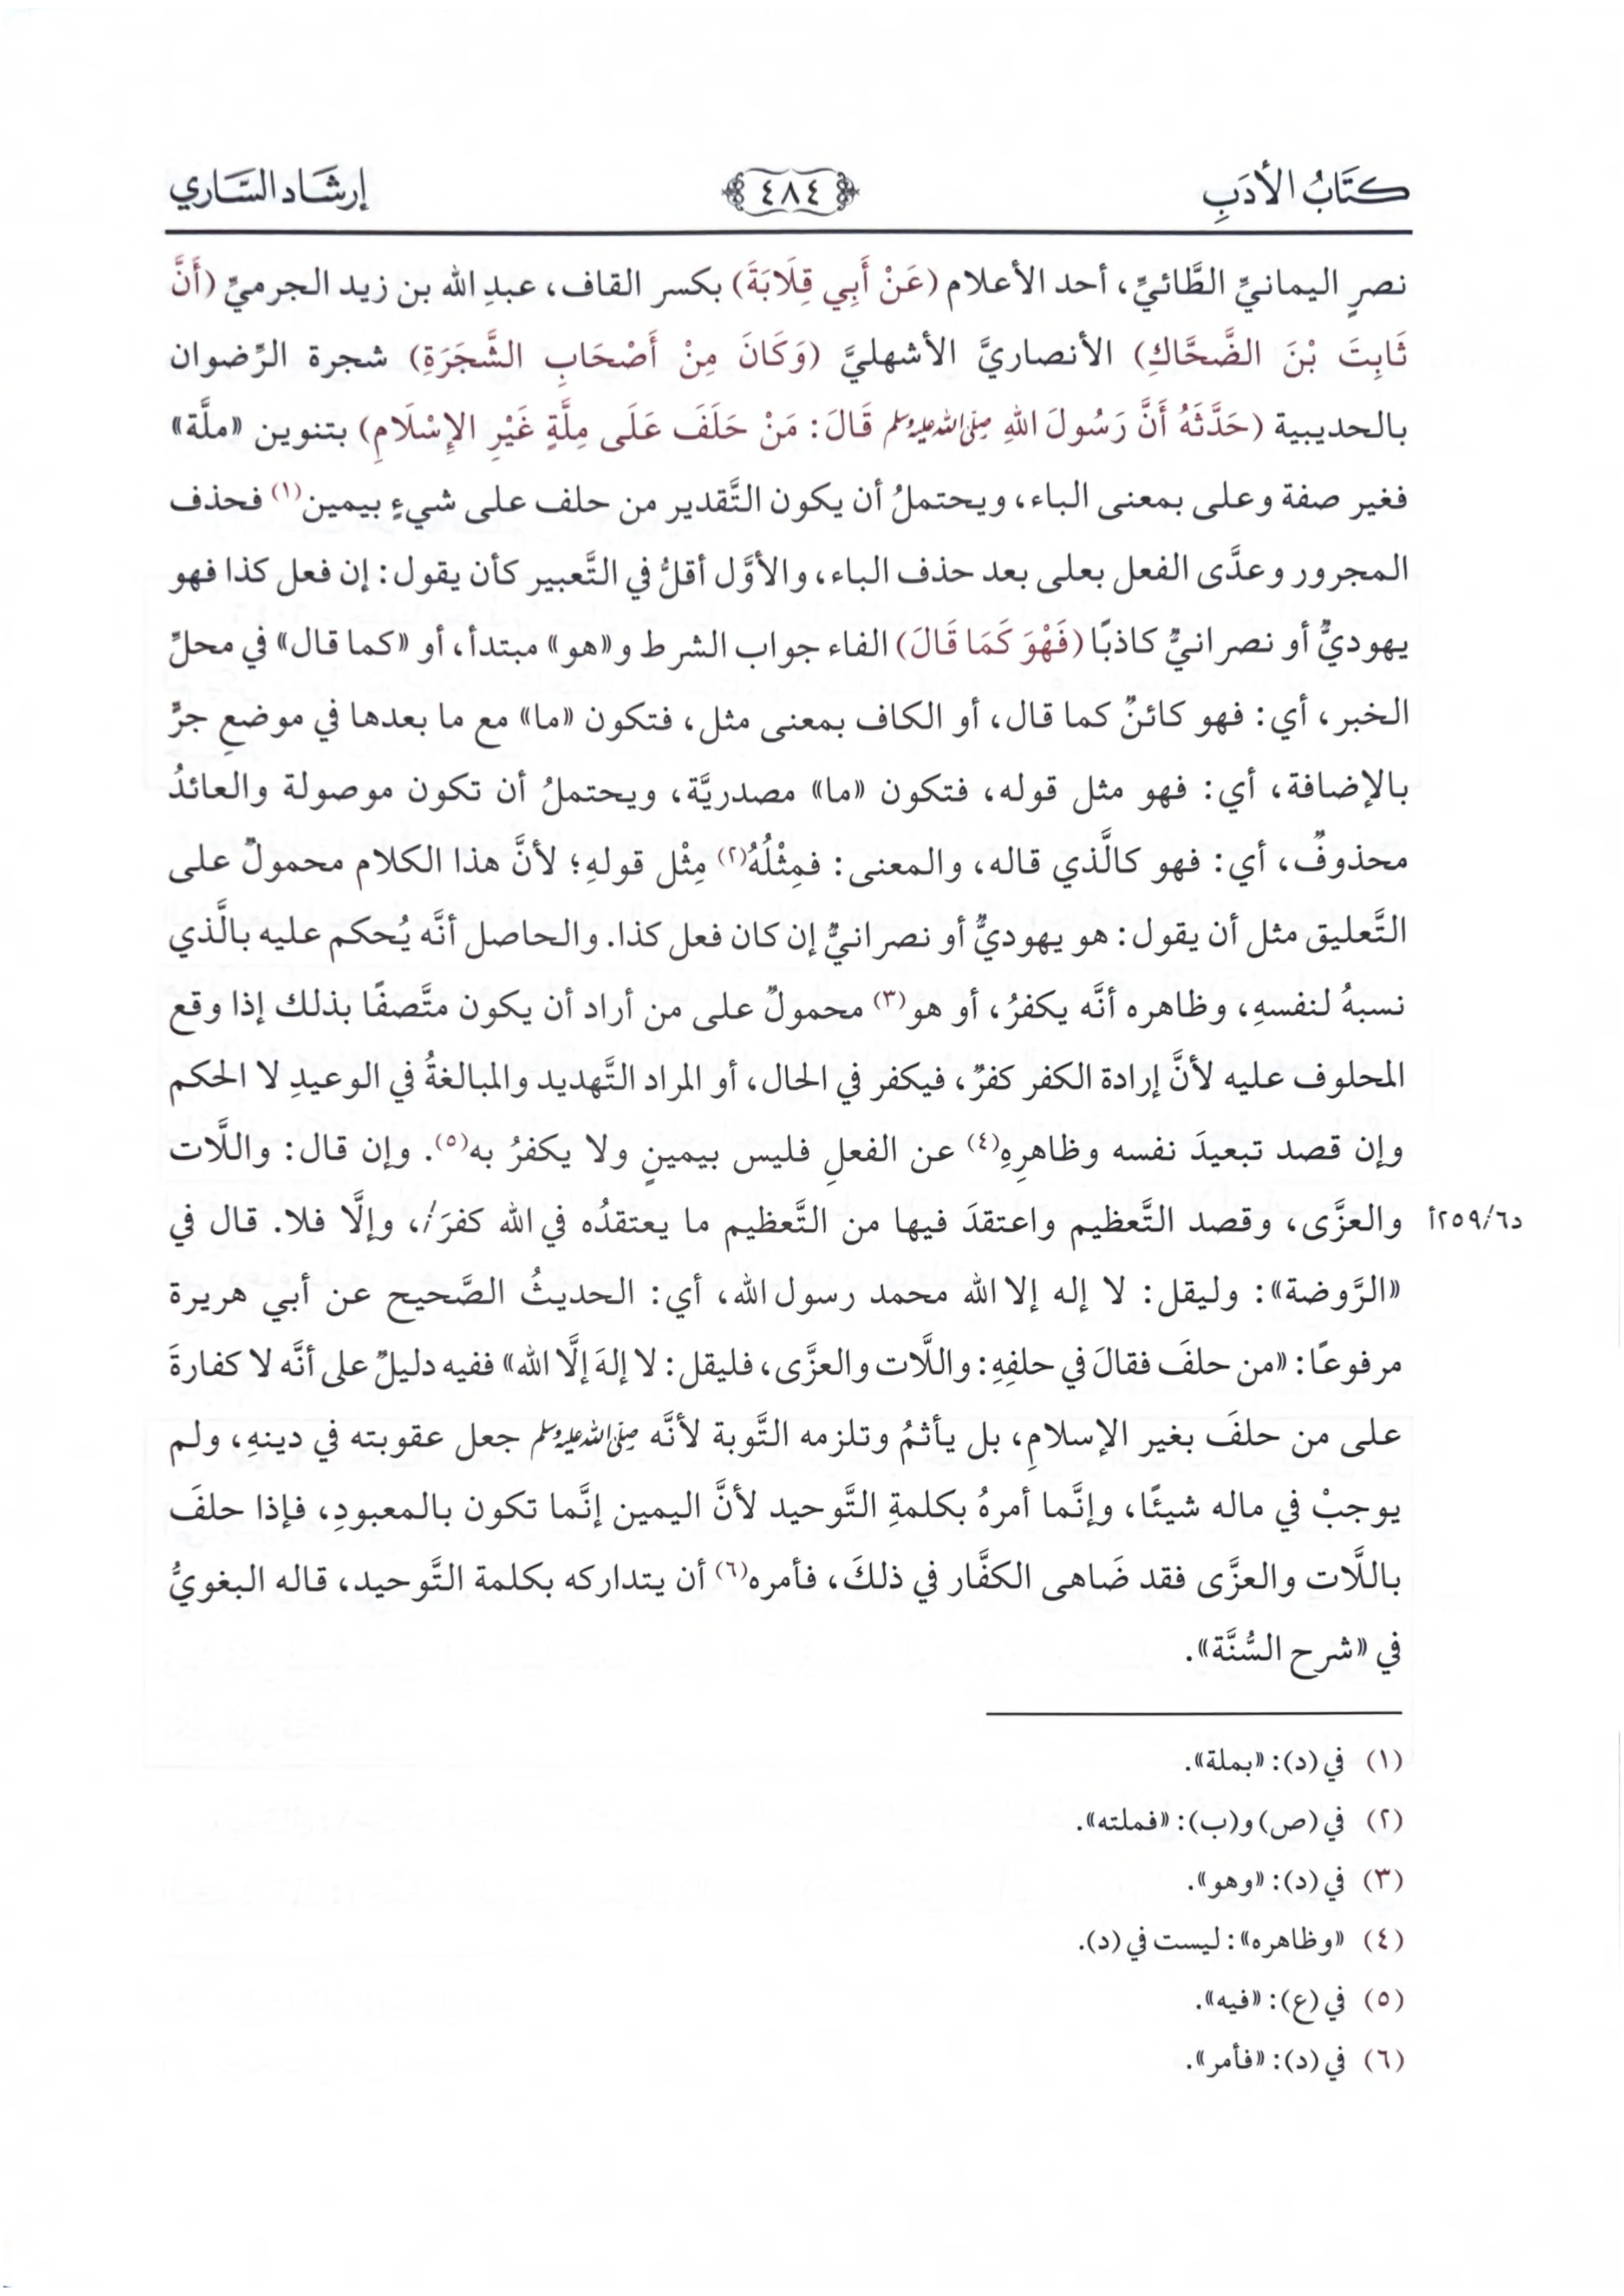 كتَابُ الأدَبِ ٤٨٤ إرشَاد السَّاري
نصرٍ اليمانيِّ الطَّائيِّ، أحد الأعلام (عَنْ أَبِي قِلَابَةَ) بكسر القاف، عبدِ الله بن زيد الجرميِّ (أَنَّ
ثَابِتَ بْنَ الضَّحَّاكِ) الأنصاريَّ الأشهليَّ (وَكَانَ مِنْ أَصْحَابِ الشَّجَرَةِ) شجرة الرِّضوان
بالحديبية (حَدَّثَهُ أَنَّ رَسُولَ اللهِ ﷺ قَالَ: مَنْ حَلَفَ عَلَى مِلَّةٍ غَيْرِ الإِسْلَامِ) بتنوين «ملَّة»
فغير صفة وعلى بمعنى الباء، ويحتملُ أن يكون التَّقدير من حلف على شيءٍ بيمين(١) فحذف
المجرور وعدَّى الفعل بعلى بعد حذف الباء، والأوَّل أقلُّ في التَّعبير كأن يقول: إن فعل كذا فهو
يهوديٌّ أو نصرانيٌّ كاذبًا (فَهْوَ كَمَا قَالَ) الفاء جواب الشرط و«هو» مبتدأ، أو «كما قال» في محلِّ
الخبر، أي: فهو كائنٌ كما قال، أو الكاف بمعنى مثل، فتكون «ما» مع ما بعدها في موضعِ جرٍّ
بالإضافة، أي: فهو مثل قوله، فتكون «ما» مصدريَّة، ويحتملُ أن تكون موصولة والعائدُ
محذوفٌ، أي: فهو كالَّذي قاله، والمعنى: فمِثْلُهُ(٢) مِثْل قولهِ؛ لأنَّ هذا الكلام محمولٌ على
التَّعليق مثل أن يقول: هو يهوديٌّ أو نصرانيٌّ إن كان فعل كذا. والحاصل أنَّه يُحكم عليه بالَّذي
نسبهُ لنفسهِ، وظاهره أنَّه يكفرُ، أو هو(٣) محمولٌ على من أراد أن يكون متَّصفًا بذلك إذا وقع
المحلوف عليه لأنَّ إرادة الكفر كفرٌ، فيكفر في الحال، أو المراد التَّهديد والمبالغةُ في الوعيدِ لا الحكم
وإن قصد تبعيدَ نفسه وظاهرِهِ(٤) عن الفعلِ فليس بيمينٍ ولا يكفرُ به(٥). وإن قال: واللَّات
والعزَّى، وقصد التَّعظيم واعتقدَ فيها من التَّعظيم ما يعتقدُه في الله كفرَ/، وإلَّا فلا. قال في د٢٥٩/٦أ
«الرَّوضة»: وليقل: لا إله إلا الله محمد رسول الله، أي: الحديثُ الصَّحيح عن أبي هريرة
مرفوعًا: «من حلفَ فقالَ في حلفِهِ: واللَّات والعزَّى، فليقل: لا إلهَ إلَّا الله» ففيه دليلٌ على أنَّه لا كفارةَ
على من حلفَ بغير الإسلامِ، بل يأثمُ وتلزمه التَّوبة لأنَّه ﷺ جعل عقوبته في دينهِ، ولم
يوجبْ في ماله شيئًا، وإنَّما أمرهُ بكلمةِ التَّوحيد لأنَّ اليمين إنَّما تكون بالمعبودِ، فإذا حلفَ
باللَّات والعزَّى فقد ضَاهى الكفَّار في ذلكَ، فأمره(٦) أن يتداركه بكلمة التَّوحيد، قاله البغويُّ
في «شرح السُّنَّة».
(١) في (د): «بملة».
(٢) في (ص) و(ب): «فملته».
(٣) في (د): «وهو».
(٤) «وظاهره»: ليست في (د).
(٥) في (ع): «فيه».
(٦) في (د): «فأمر».